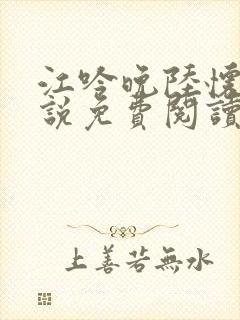 江吟晚陸懷
說免費閱讀
上善若無水